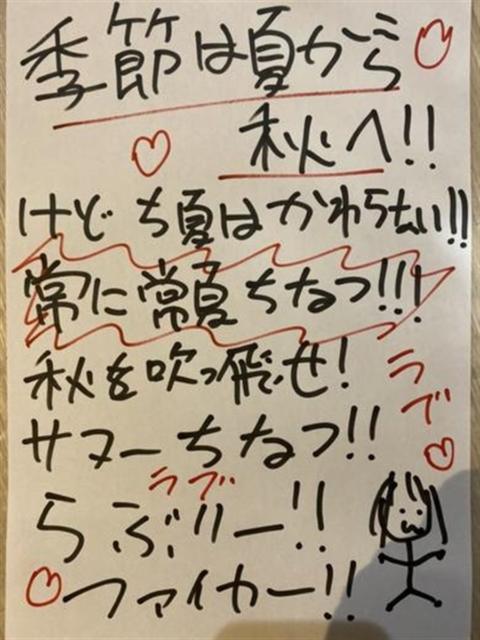 季節は夏から
秋へ!!
けど ち夏は かわらない!!
常に常夏ちなつ!!!
秋を吹っ飛せ!
サマーちなつ!!
ラブ
ラブ
らぶりー!!
ファイカー!!